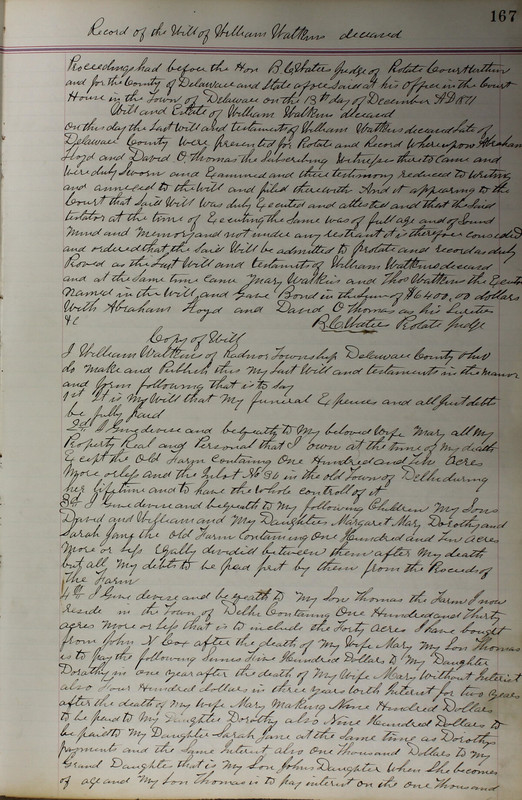 167
Record of the Will of William Watkins deceased
Proceedings had before the Hon B. C. Waters Judge of Probate Court within
and for the County of Delaware and State aforesaid at his office in the Court
House in the Town of Delaware on the 13th day of December AD
Will and Estate of William Watkins deceased
On this day the Last Will and testament of William Watkins deceased late of
Delaware County were presented for Probate and Record Whereupon Abraham
Floyd and David O. Thomas the Subscribing Witnesses thereto Came and
were duly Sworn and Examined and their testimony reduced to writing
and annexed to the will and filed therewith And it appearing to the
Court that Said Will was duly Executed and attested and that the Said
testator at the time of Executing the Same was of full age and of Sound
Mind and Memory and not under any restraint it is therefore considered
and ordered that the Said Will be admitted to Probate and record as duly
Proved as the Last Will and testament of William Watkins deceased
and at the same time came Mary Watkins and Thos Watkins the
Named in the Will and Gave Bond in the Sum of $6400,00 dollars
With Abraham Floyd and David O Thomas as his
&c B. C. Probate Judge
Copy of Will
I William Watkins of Radnor Township Delaware County Ohio
do make and Publish this My Last Will and testament in the manor
and form following that is to Say
1st It is My Will that My funeral Expences and all Just debts
be fully paid
2d I Give devise and bequeath to My beloved Wife Mary all My
Property Real and Personal that I own at the time of My death
Except the Old Farm Containing One Hundred and Acres
More or less and the Inlot No 36 in the old Town of Delhi during
her lifetime and to have the whole controll of it
3d I Give devise and bequeath to My following Children My Sons
David and William and My Daughters Margaret Mary Dorothy and
Sarah Jane the Old Farm Containing One Hundred and acres
More or less Egally divided between them after My death
but all My debts to be paid first by them from the Proceeds of
The Farm
4th I Give devise and bequeath to My Son Thomas the Farm I now
reside in the Town of Delhi Containing One Hundred and Thirty
acres More or less that is to include the Forty Acres I have bought
from John N Cox after the death of My Wife Mary My Son Thomas
is to pay the following Sums Five Hundred Dollars to My Daughter
Dorathy in one year after the death of My Wife Mary Without Interest
also Four Hundred dollars in three years with Interest for two years
after the death of my Wife Mary Making Nine Hundred Dollars
to be paid to My Daughter Dorothy also Nine Hundred Dollars to
be paid to My Daughter Sarah Jane at the same time as Dorothys
payments and the Same Interest also One Thousand Dollars to My
Grand Daughter that is My Son Johns Daughter When She becomes
of age and My Son Thomas is to pay interest on the one Thousand